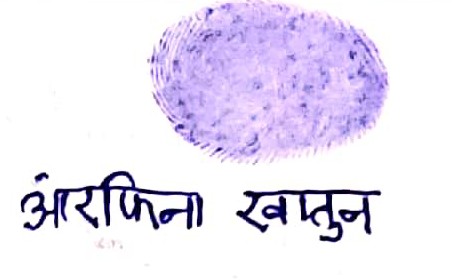 आरफिना खातुन